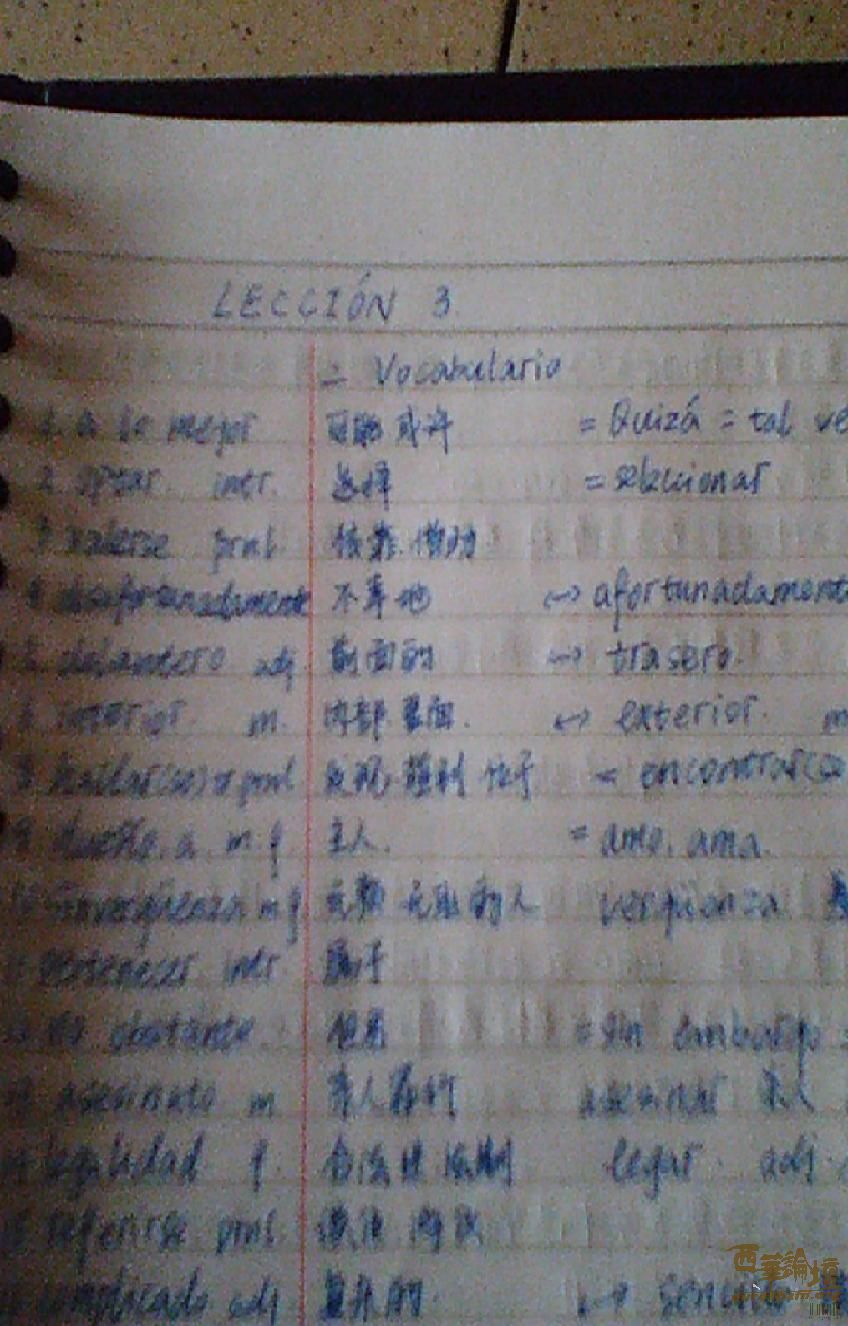 LECCIÓN 3.
二 Vocabulario
1. a lo mejor 可能 或许 = Quizá = tal ve
2. optar. intr. 选择 = seleccionar
valerse prnl. 依靠.借助
desafortunadamente 不幸地 ↔ afortunadamente
delantero adj 前面的 ↔ trasero.
interior m. 内部 里面. ↔ exterior. m
hallar(se) prnl 发现, 位于 = encontrar(se
dueño, a m.f 主人. = amo, ama.
sinvergüenza m f 无赖 无耻的人 verguenza
pertenecer intr 属于
no obstante 但是 = sin embargo
asesinato m asesinar 杀人
legalidad f. 合法性 legar. adj.
referirse prnl.
complicado adj 复杂的. ↔ sencillo
西華論壇